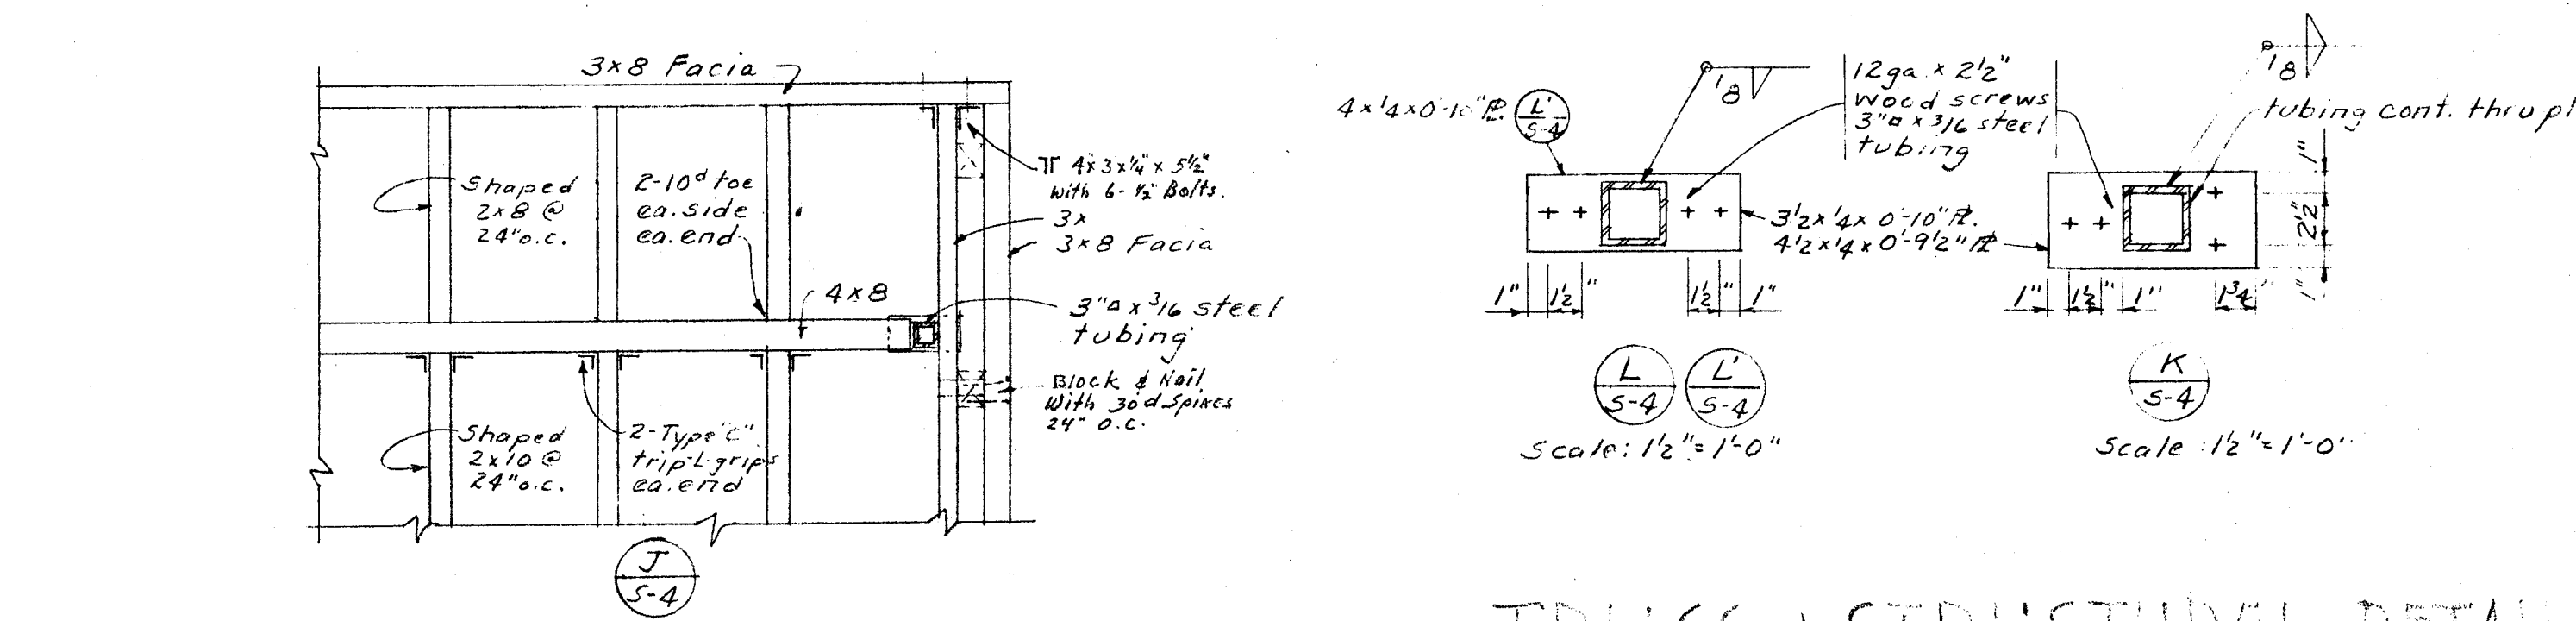 3x8 Facia
Shaped
2x8 @
24" o.c.
2-10d toe
ea. side
ea. end
4x8
4x3x1/4"x5 1/2"
with 6-1/2" Bolts.
3x
3x8 Facia
3"□ x 3/16 steel
tubing
Block & Nail
With 30d Spikes
24" O.C.
Shaped
2x10 @
24" o.c.
2-Type "C"
trip-L-grips
ea. end
J
S-4
4x1/4x0'-10" ℙ.
L'
S-4
1/8
12ga. x 2 1/2"
wood screws
3"□ x 3/16 steel
tubing
3 1/2x1/4x0'-10" ℙ.
4 1/2x1/4x0'-9 1/2" ℙ
1" 1 1/2" 1 1/2" 1"
L
S-4
L'
S-4
Scale: 1 1/2" = 1'-0"
1/8
tubing cont. thru pl
1"
2 1/2"
1"
1" 1 1/2" 1" 1 3/4"
K
S-4
Scale: 1 1/2" = 1'-0"